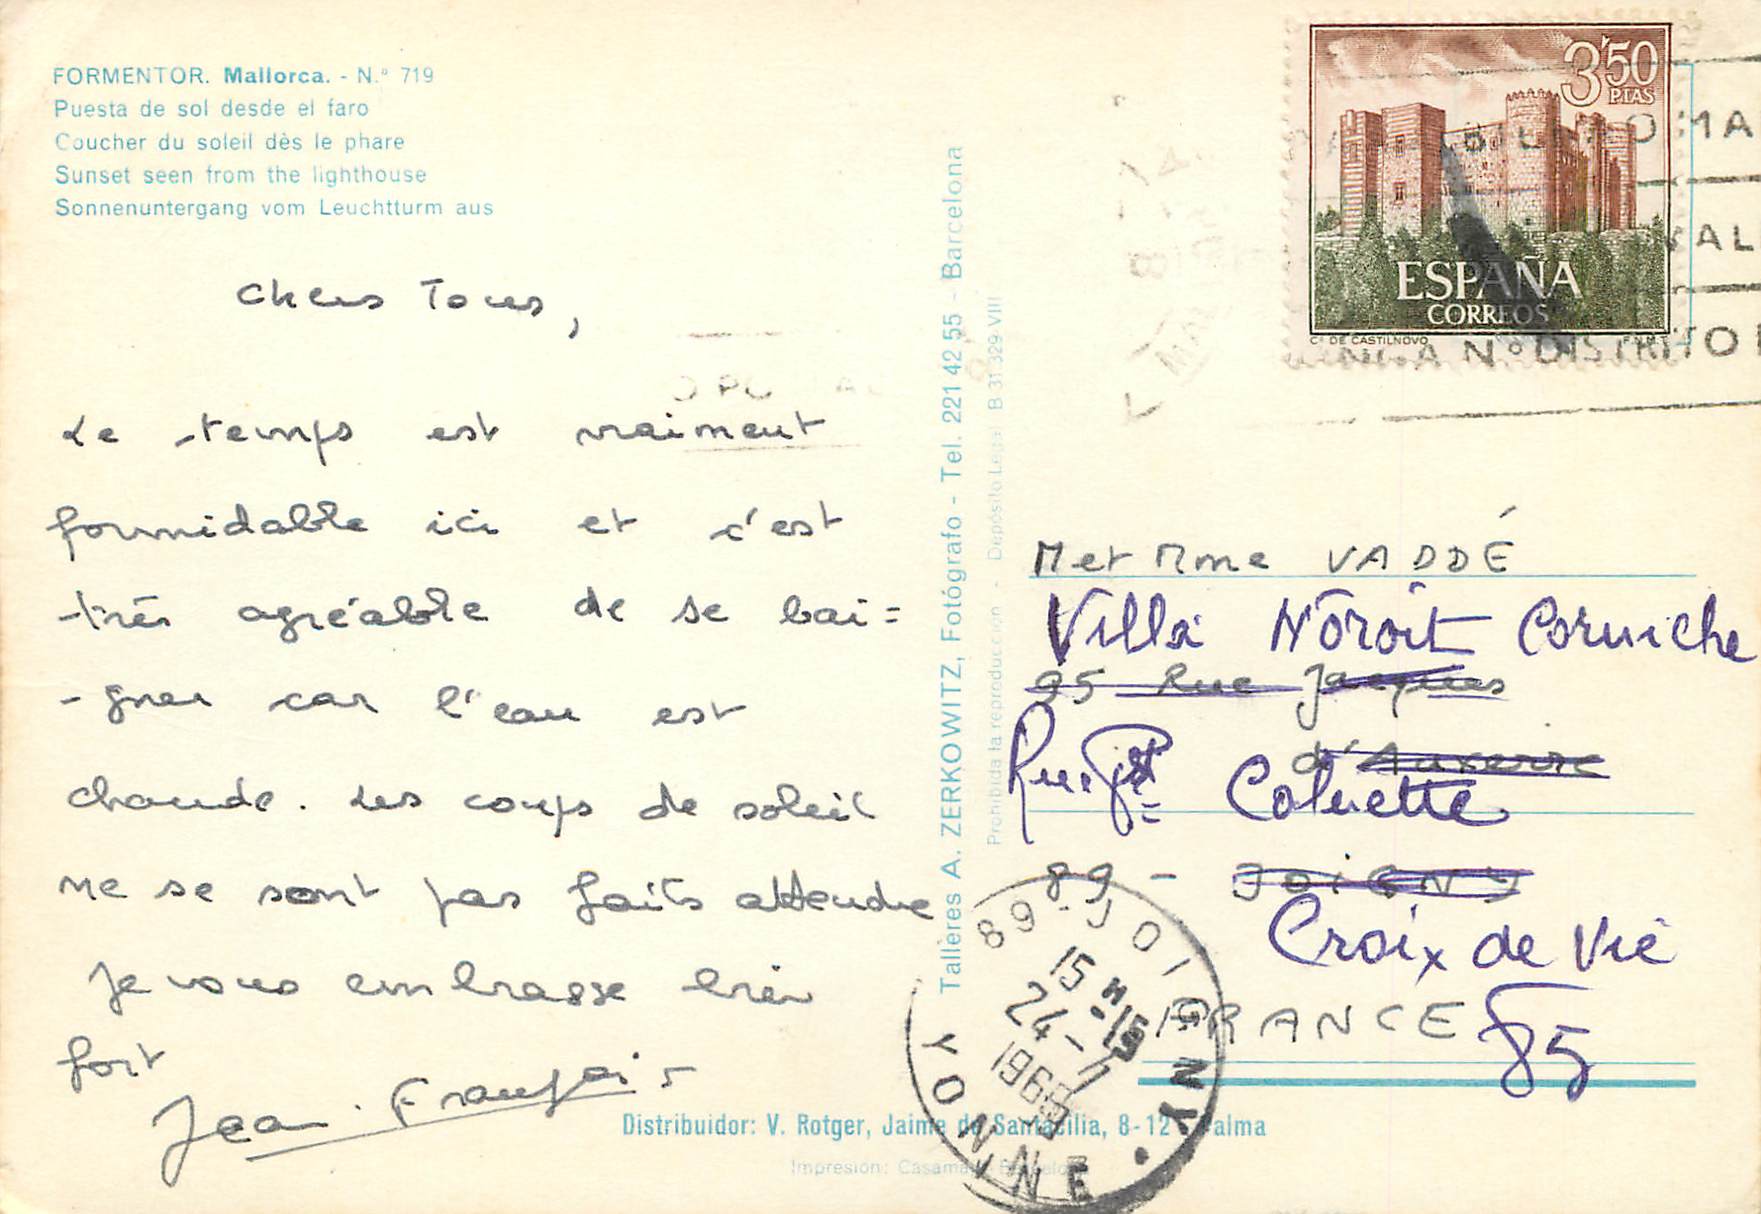 FORMENTOR. Mallorca. - N.º 719
Puesta de sol desde el faro
Coucher du soleil dès le phare
Sunset seen from the lighthouse
Sonnenuntergang vom Leuchtturm aus
Chers Tous,
Le temps est vraiment
formidable ici et c'est
très agréable de se bai=
-gner car l'eau est
chaude. Les coups de soleil
ne se sont pas faits attendre
Je vous embrasse bien
fort
Jean-François
Tallères A. ZERKOWITZ, Fotógrafo - Tel. 221 42 55 - Barcelona
Prohibida la reproduccion - Depósito Legal B 31 329-VIII
3'50
PTAS
ESPAÑA
CORREOS
Cº DE CASTILNOVO
F.N.M.T.
DISTRITO
M et Mme VADDÉ
Villa Noroit Corniche
95 Rue Jacques
d'Auxerre
89 - JOIGNY
Croix de Vie
FRANCE 85
89 JOIGNY
15 H -15
24 - 7
1968
YONNE
Distribuidor: V. Rotger, Jaime de Santacilia, 8-12 Palma
Impresión: Casamajó, Barcelona